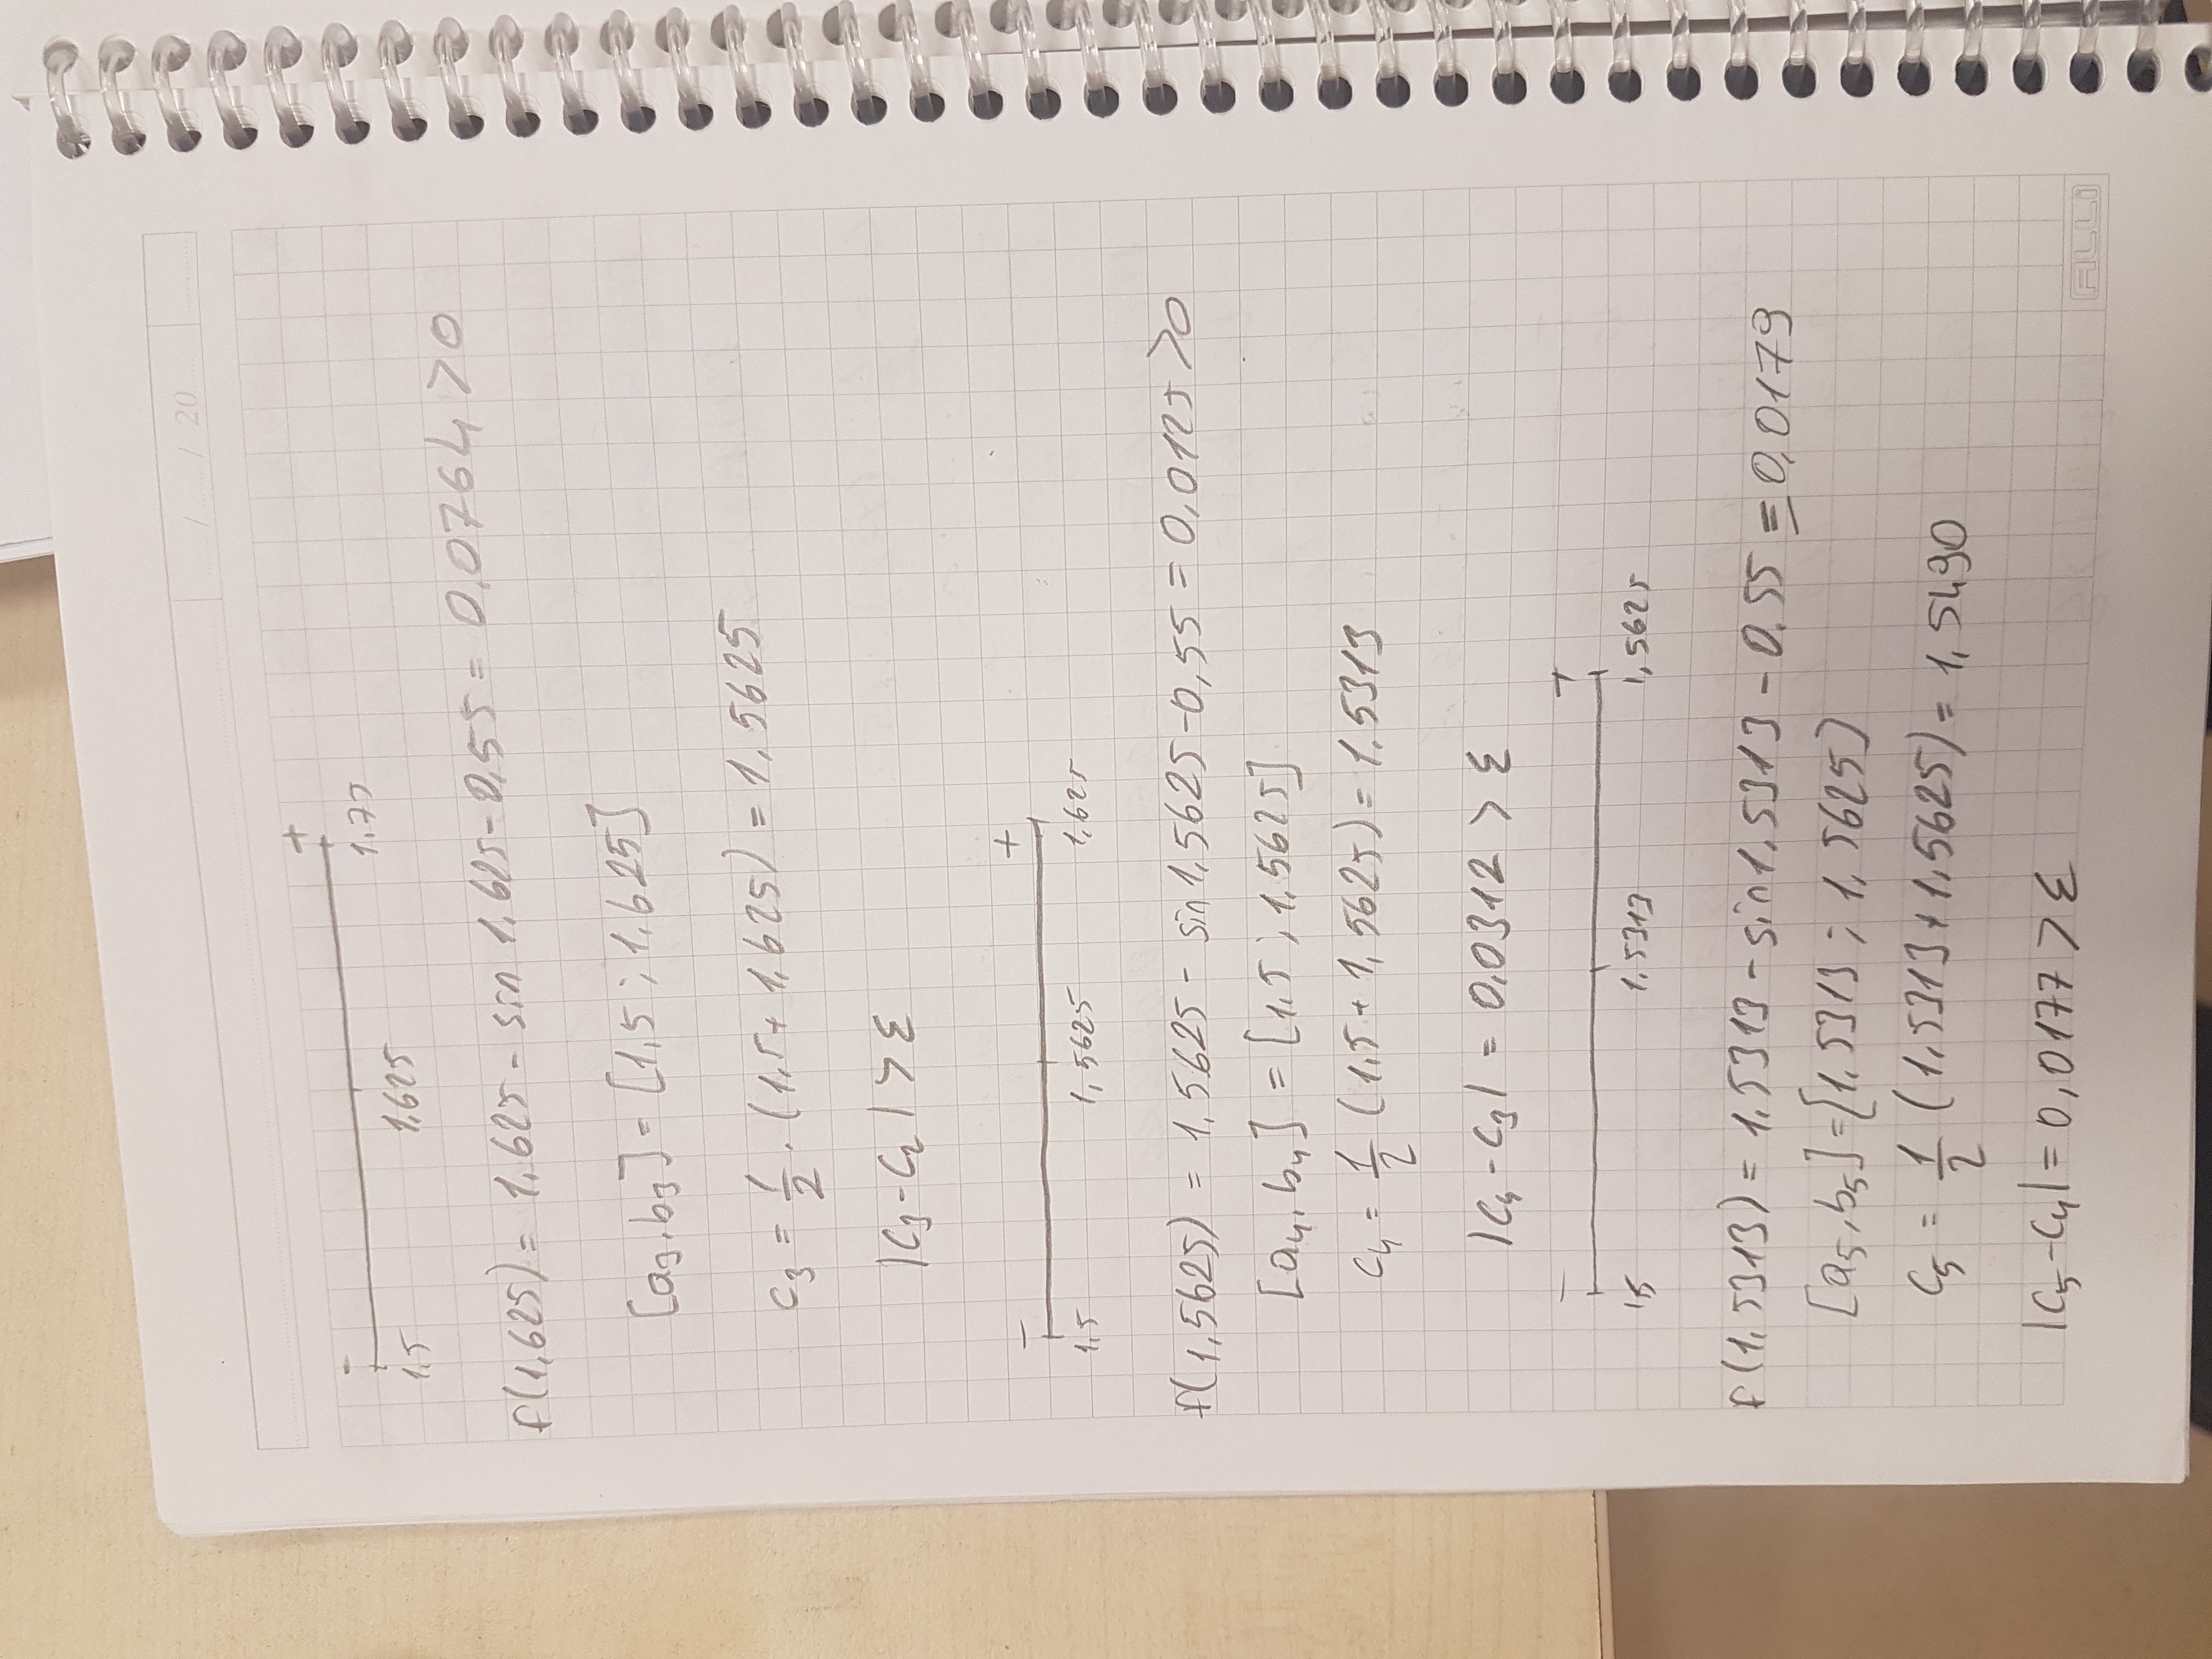 / / 20
- +
1,5 1,625 1,75
f(1,625) = 1,625 - sin 1,625 - 0,55 = 0,0764 > 0
[a₃, b₃] = [1,5 ; 1,625]
c₃ = 1/2 . (1,5 + 1,625) = 1,5625
|c₃ - c₂| > ε
- +
1,5 1,5625 1,625
f(1,5625) = 1,5625 - sin 1,5625 - 0,55 = 0,0125 > 0
[a₄, b₄] = [1,5 ; 1,5625]
c₄ = 1/2 (1,5 + 1,5625) = 1,5313
|c₄ - c₃| = 0,0312 > ε
- +
1,5 1,5313 1,5625
f(1,5313) = 1,5313 - sin 1,5313 - 0,55 = 0,0179
[a₅, b₅] = [1,5313 ; 1,5625]
c₅ = 1/2 (1,5313 + 1,5625) = 1,5490
|c₅ - c₄| = 0,0177 > ε
ALLi